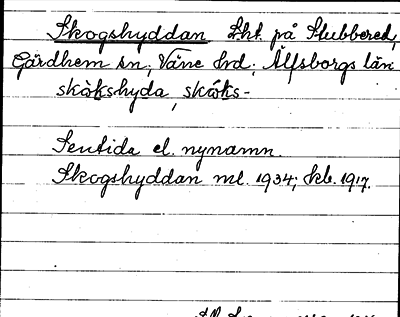 Skogshyddan Lht. på Stubbered,
Gärdhem sn; Väne hd; Älfsborgs län
skòkshyda, skóks-
Sentida el. nynamn.
Skogshyddan ml. 1934; kb. 1917.